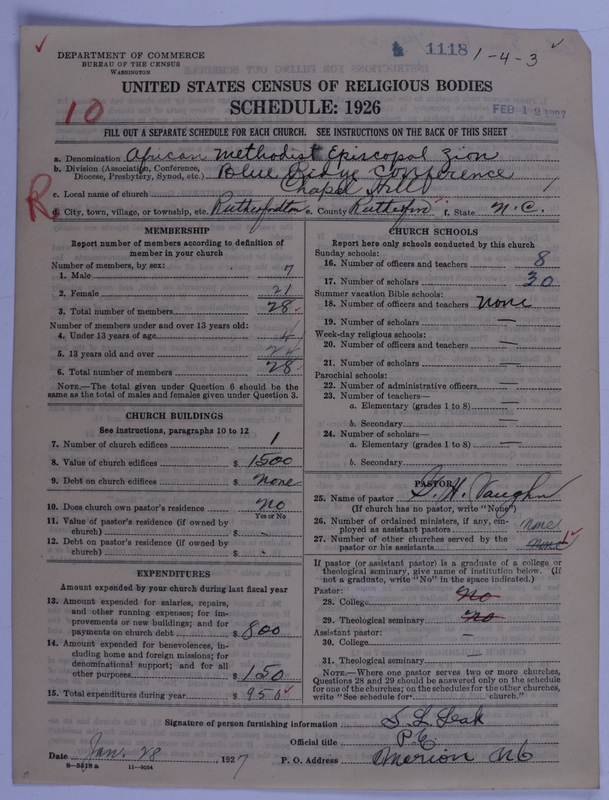 DEPARTMENT OF COMMERCE
BUREAU OF THE CENSUS
WASHINGTON
1118 1-4-3
UNITED STATES CENSUS OF RELIGIOUS BODIES
SCHEDULE: 1926
10
FEB 12 1927
FILL OUT A SEPARATE SCHEDULE FOR EACH CHURCH. SEE INSTRUCTIONS ON THE BACK OF THIS SHEET
a. Denomination African Methodist Episcopal Zion
b. Division (Association, Conference, Diocese, Presbytery, Synod, etc.) Blue Ridge Conference
c. Local name of church Chapel Hill
R
d. City, town, village, or township, etc. Rutherfordton e. County Rutherford f. State N.C.
MEMBERSHIP
Report number of members according to definition of
member in your church
Number of members, by sex:
1. Male 7
2. Female 21
3. Total number of members 28
Number of members under and over 13 years old:
4. Under 13 years of age 4
5. 13 years old and over 24
6. Total number of members 28
NOTE.—The total given under Question 6 should be
same as the total of males and females given under Question 3.
CHURCH BUILDINGS
See instructions, paragraphs 10 to 12
7. Number of church edifices 1
8. Value of church edifices $ 1500
9. Debt on church edifices $ none
10. Does church own pastor's residence no
Yes or No
11. Value of pastor's residence (if owned by
church) $ -
12. Debt on pastor's residence (if owned by
church) $ -
EXPENDITURES
Amount expended by your church during last fiscal year
13. Amount expended for salaries, repairs,
and other running expenses; for im-
provements or new buildings; and for
payments on church debt $ 800
14. Amount expended for benevolences, in-
cluding home and foreign missions; for
denominational support; and for all
other purposes $ 150
15. Total expenditures during year $ 950
CHURCH SCHOOLS
Report here only schools conducted by this church
Sunday schools:
16. Number of officers and teachers 8
17. Number of scholars 30
Summer vacation Bible schools:
18. Number of officers and teachers none
19. Number of scholars —
Week-day religious schools:
20. Number of officers and teachers —
21. Number of scholars —
Parochial schools:
22. Number of administrative officers —
23. Number of teachers—
a. Elementary (grades 1 to 8) —
b. Secondary —
24. Number of scholars—
a. Elementary (grades 1 to 8) —
b. Secondary
PASTOR
25. Name of pastor S. H. Vaughn
(If church has no pastor, write "None")
26. Number of ordained ministers, if any, em-
ployed as assistant pastors none
27. Number of other churches served by the
pastor or his assistants none 1
If pastor (or assistant pastor) is a graduate of a college or
theological seminary, give name of institution below. (If
not a graduate, write "No" in the space indicated.)
Pastor:
28. College No
29. Theological seminary No
Assistant pastor:
30. College —
31. Theological seminary —
NOTE.—Where one pastor serves two or more churches,
Questions 28 and 29 should be answered only on the schedule
for one of the churches; on the schedules for the other churches,
write "See schedule for church."
Signature of person furnishing information S. L. Leak
Official title P.E.
Date Jan. 28, 1927 P. O. Address Marion NC
8-5518a 11-9034